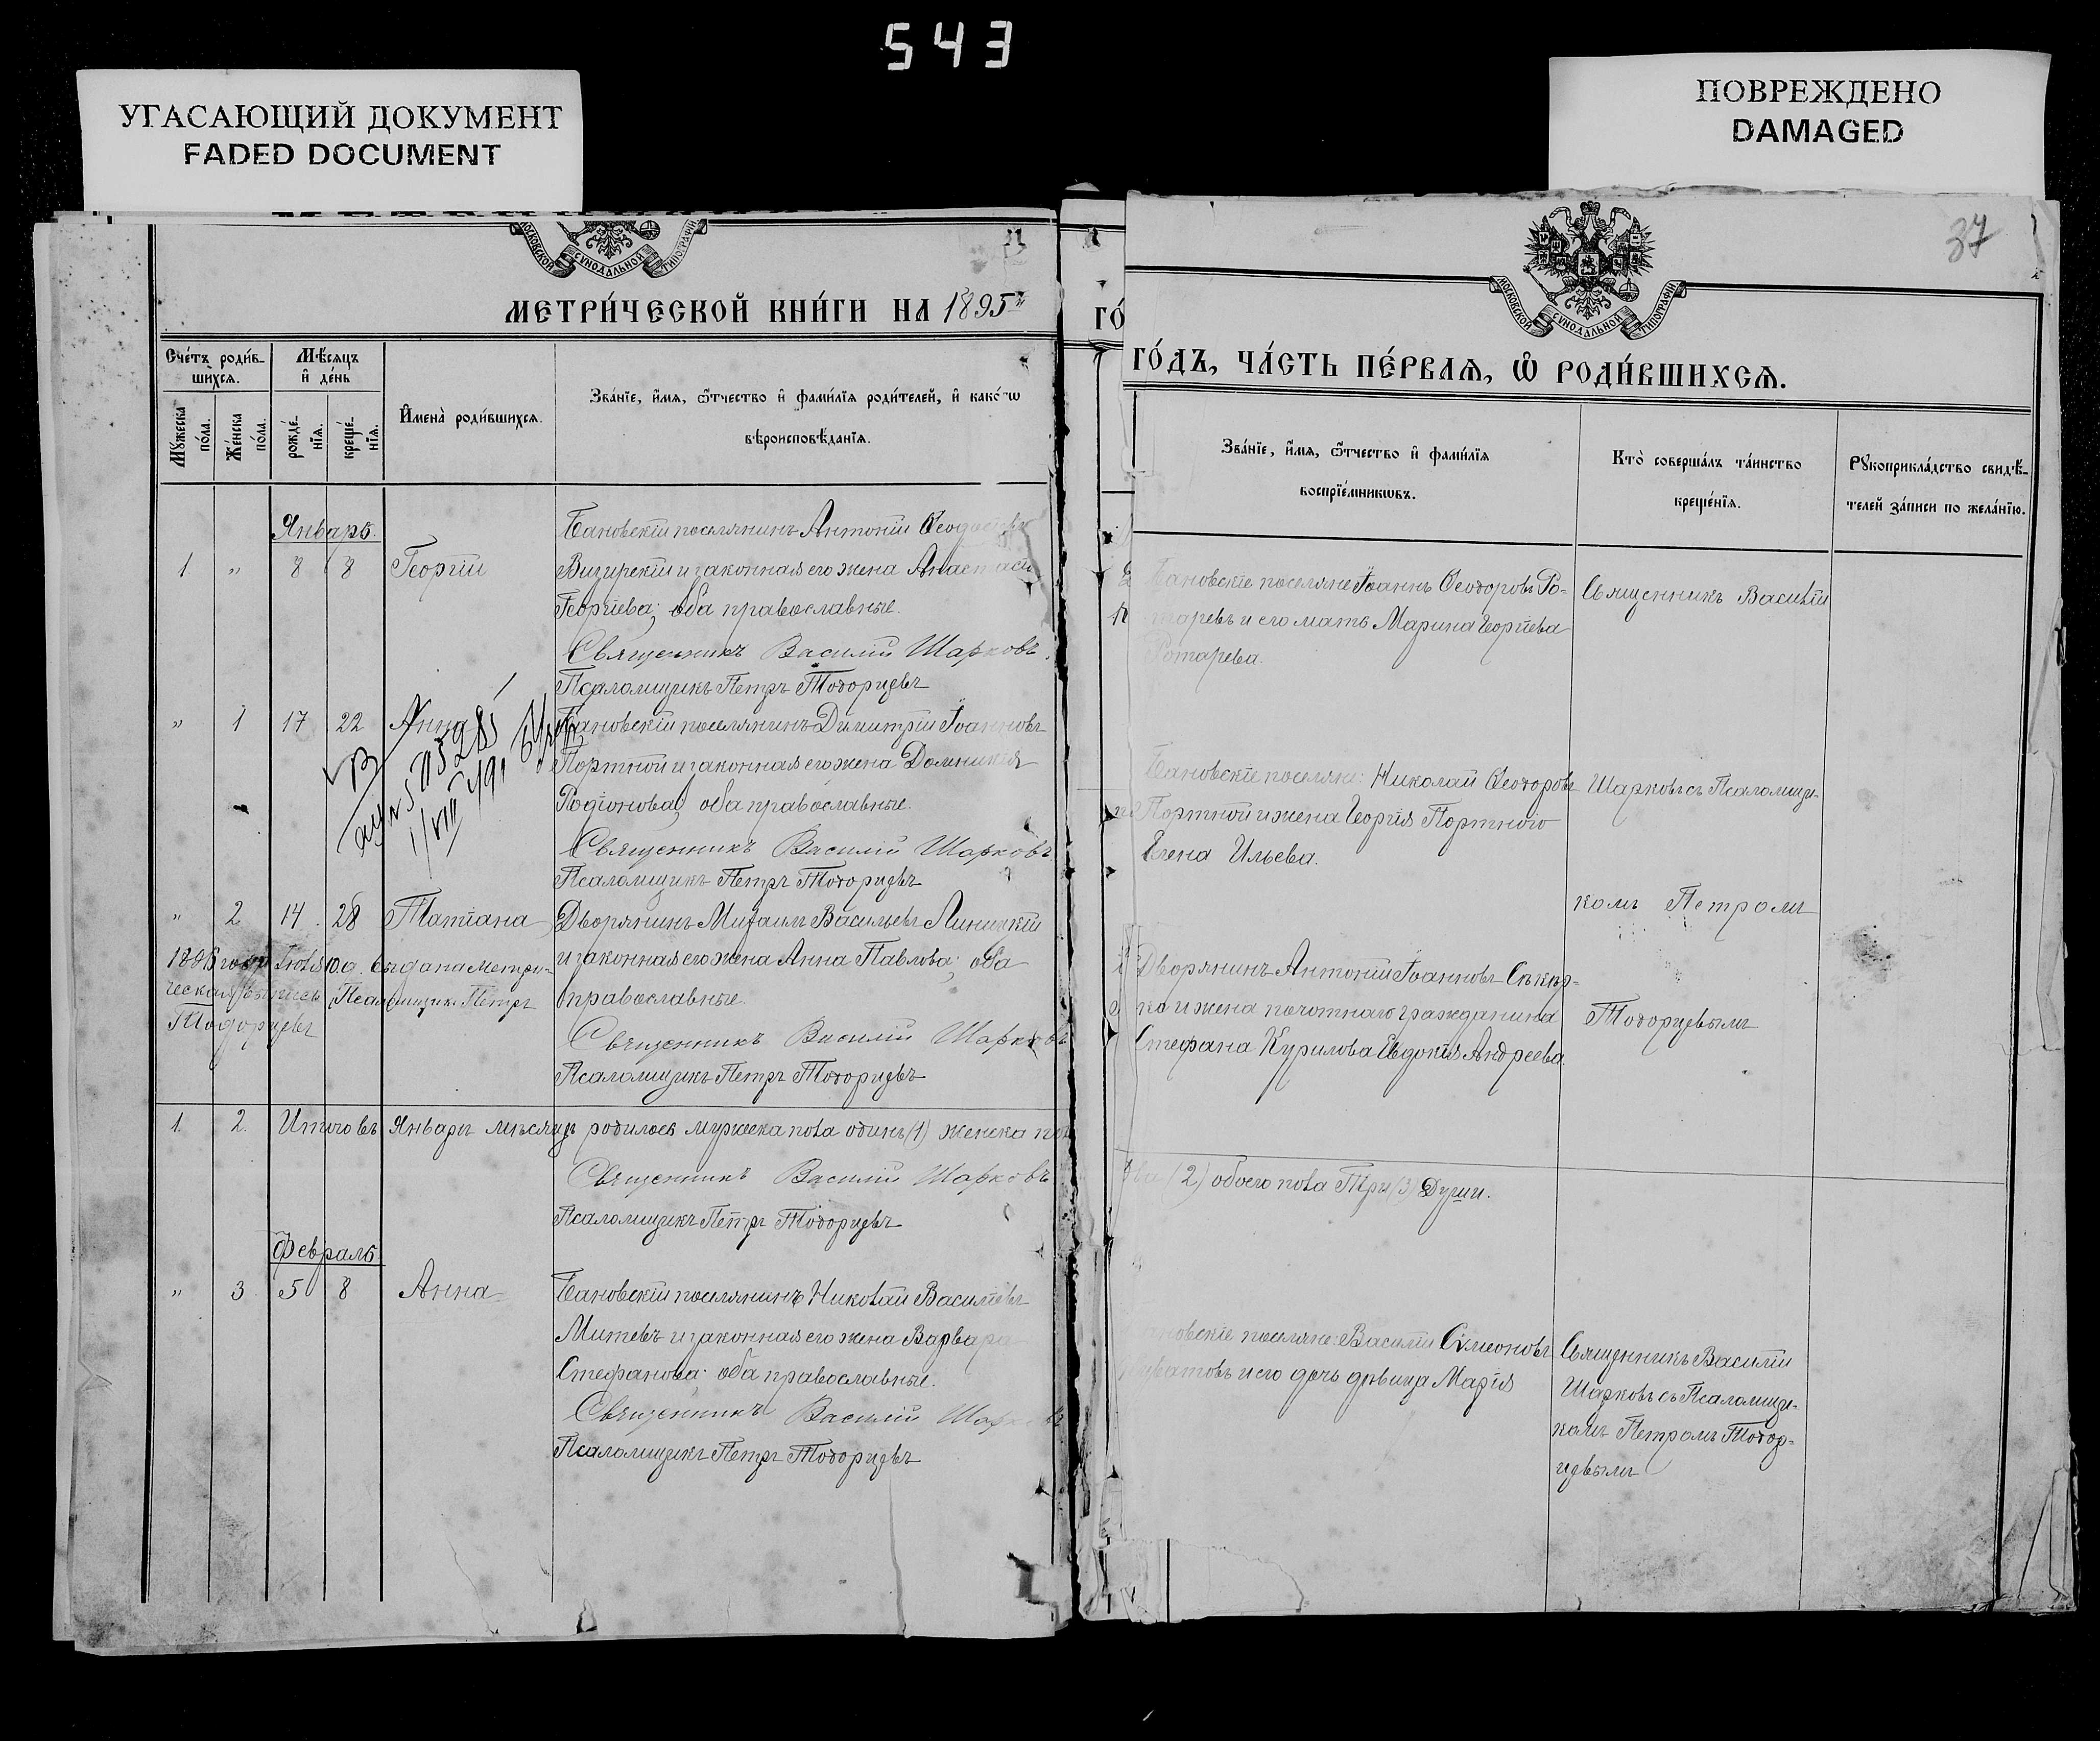 543
УГАСАЮЩИЙ ДОКУМЕНТ
FADED DOCUMENT
ПОВРЕЖДЕНО
DAMAGED
МОСКОВСКОЙ СѴНОДАЛЬНОЙ ТИПОГРАФІИ
МЕТРИ́ЧЕСКОЙ КНИ́ГИ НА 1895
Сче́тъ роди́в-
шихсѧ.
Мѣ́сѧцъ
и҆ де́нь
Мꙋ́жеска
по́ла.
Же́нска
по́ла.
рожде́-
нїѧ.
креще́-
нїѧ.
И҆мена̀ роди́вшихсѧ.
Зва́нїе, и҆́мѧ, ѻ҆́тчество и҆ фами́лїѧ роди́телей, и҆ како́гѡ
вѣроисповѣ́данїѧ.
Январь.
Бановскій поселянинъ Антоній
1 " 8 8 Георгій
Визирскій и законная его жена Анастасія
Георгіева; оба православные.
Священникъ Василій Шарковъ
Псаломщикъ Петръ Тодорцевъ
" 1 17 22 Анна
Бановскій поселянинъ Димитрій Іоанновъ
Портной и законная его жена Домникія
Родіонова; оба православные.
Священникъ Василій Шарковъ
Псаломщикъ Петръ Тодорцевъ
" 2 14 28 Татіана
Дворянинъ Михаилъ Васильевъ Линицкій
и законная его жена Анна Павлова; оба
православные.
выдана метри-
ческая выпись Псаломщикъ Петръ
Тодорцевъ
Священникъ Василій Шарковъ
Псаломщикъ Петръ Тодорцевъ
1. 2. Итого въ Январѣ мѣсяцѣ родилось мужеска пола одинъ (1) женска пола
Священникъ Василій Шарковъ
Псаломщикъ Петръ Тодорцевъ
Февраль
" 3 5 8 Анна
Бановскій поселянинъ Николай Василіевъ
Митевъ и законная его жена Варвара
Стефанова; оба православные.
Священникъ Василій Шарковъ
Псаломщикъ Петръ Тодорцевъ
37
МОСКОВСКОЙ СѴНОДАЛЬНОЙ ТИПОГРАФІИ
ГО́ДЪ, ЧА́СТЬ ПЕ́РВАѦ, Ѡ҆ РОДИ́ВШИХСѦ.
Зва́нїе, и҆́мѧ, ѻ҆́тчество и҆ фами́лїѧ
воспрїе́мникѡвъ.
Кто̀ соверша́лъ та́инство
креще́нїѧ.
Рꙋкоприкла́дство свидѣ́-
телей за́писи по жела́нїю.
Бановскіе поселяне Іоаннъ Ѳеодоровъ Ро-
таревъ и его мать Марина Георгіева
Ротарева.
Священникъ Василій
Бановскіе поселяне: Николай Ѳеодоровъ
Портной и жена Георгія Портного
Елена Ильева.
Шарковъ съ Псаломщи-
комъ Петромъ
Дворянинъ Антоній Іоанновъ
ко и жена почотнаго гражданина
Стефана Курилова Евдокія Андреева.
Тодорцевымъ
два (2) обоего пола Три (3) Души.
Бановскіе поселяне: Василій Симеоновъ
и его дочь дѣвица Марія
Священникъ Василій
Шарковъ съ Псаломщи-
комъ Петромъ Тодор-
цевымъ